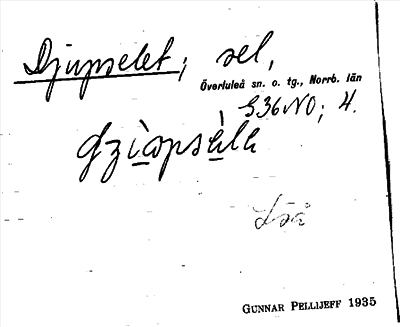 Djupselet; sel,
Överluleå sn. o. tg., Norrb. län
G36 NO; 4.
GUNNAR PELLIJEFF 1935